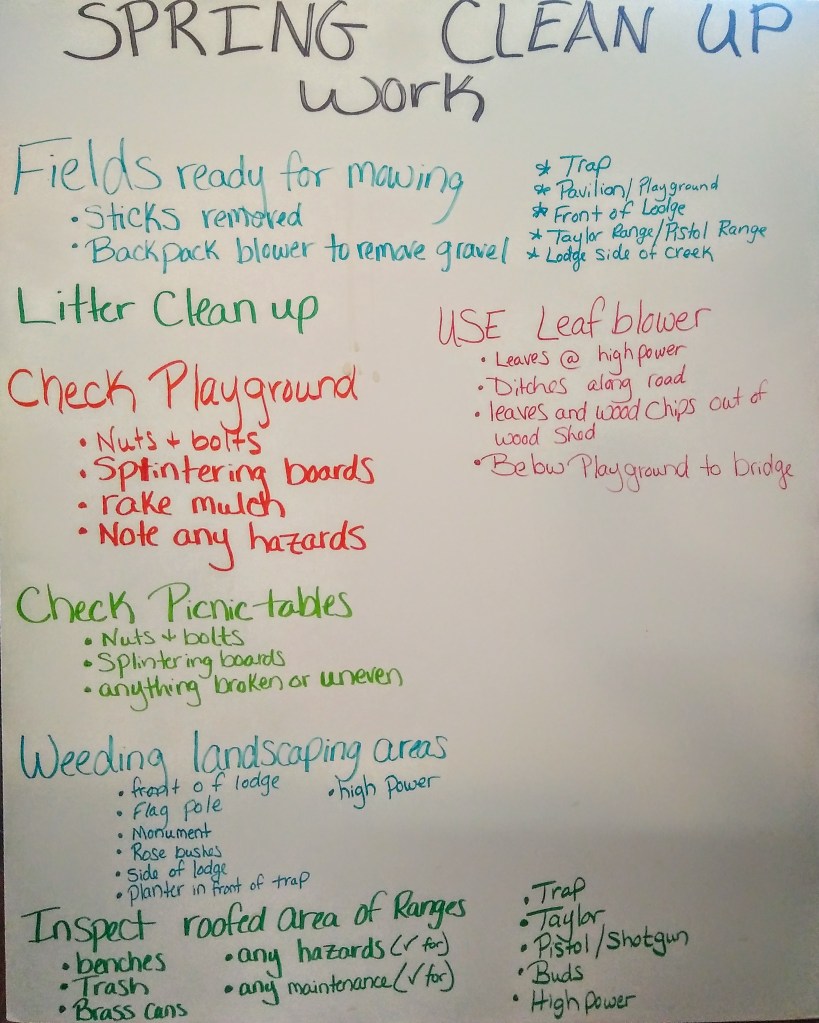 SPRING CLEAN UP
Work
Fields ready for mowing
• Sticks removed
• Backpack blower to remove gravel
* Trap
* Pavilion/Playground
* Front of Lodge
* Taylor Range/Pistol Range
* Lodge side of creek
Litter Clean up
USE Leaf blower
• Leaves @ high power
• Ditches along road
• leaves and wood chips out of
wood shed
• Below Playground to bridge
Check Playground
• Nuts + bolts
• Splintering boards
• rake mulch
• Note any hazards
Check Picnic tables
• Nuts + bolts
• Splintering boards
• anything broken or uneven
Weeding landscaping areas
• front of lodge
• Flag pole
• Monument
• Rose bushes
• Side of lodge
• Planter in front of trap
• high Power
Inspect roofed area of Ranges
• benches
• Trash
• Brass cans
• any hazards (✓ for)
• any maintenance (✓ for)
• Trap
• Taylor
• Pistol/Shotgun
• Buds
• High power